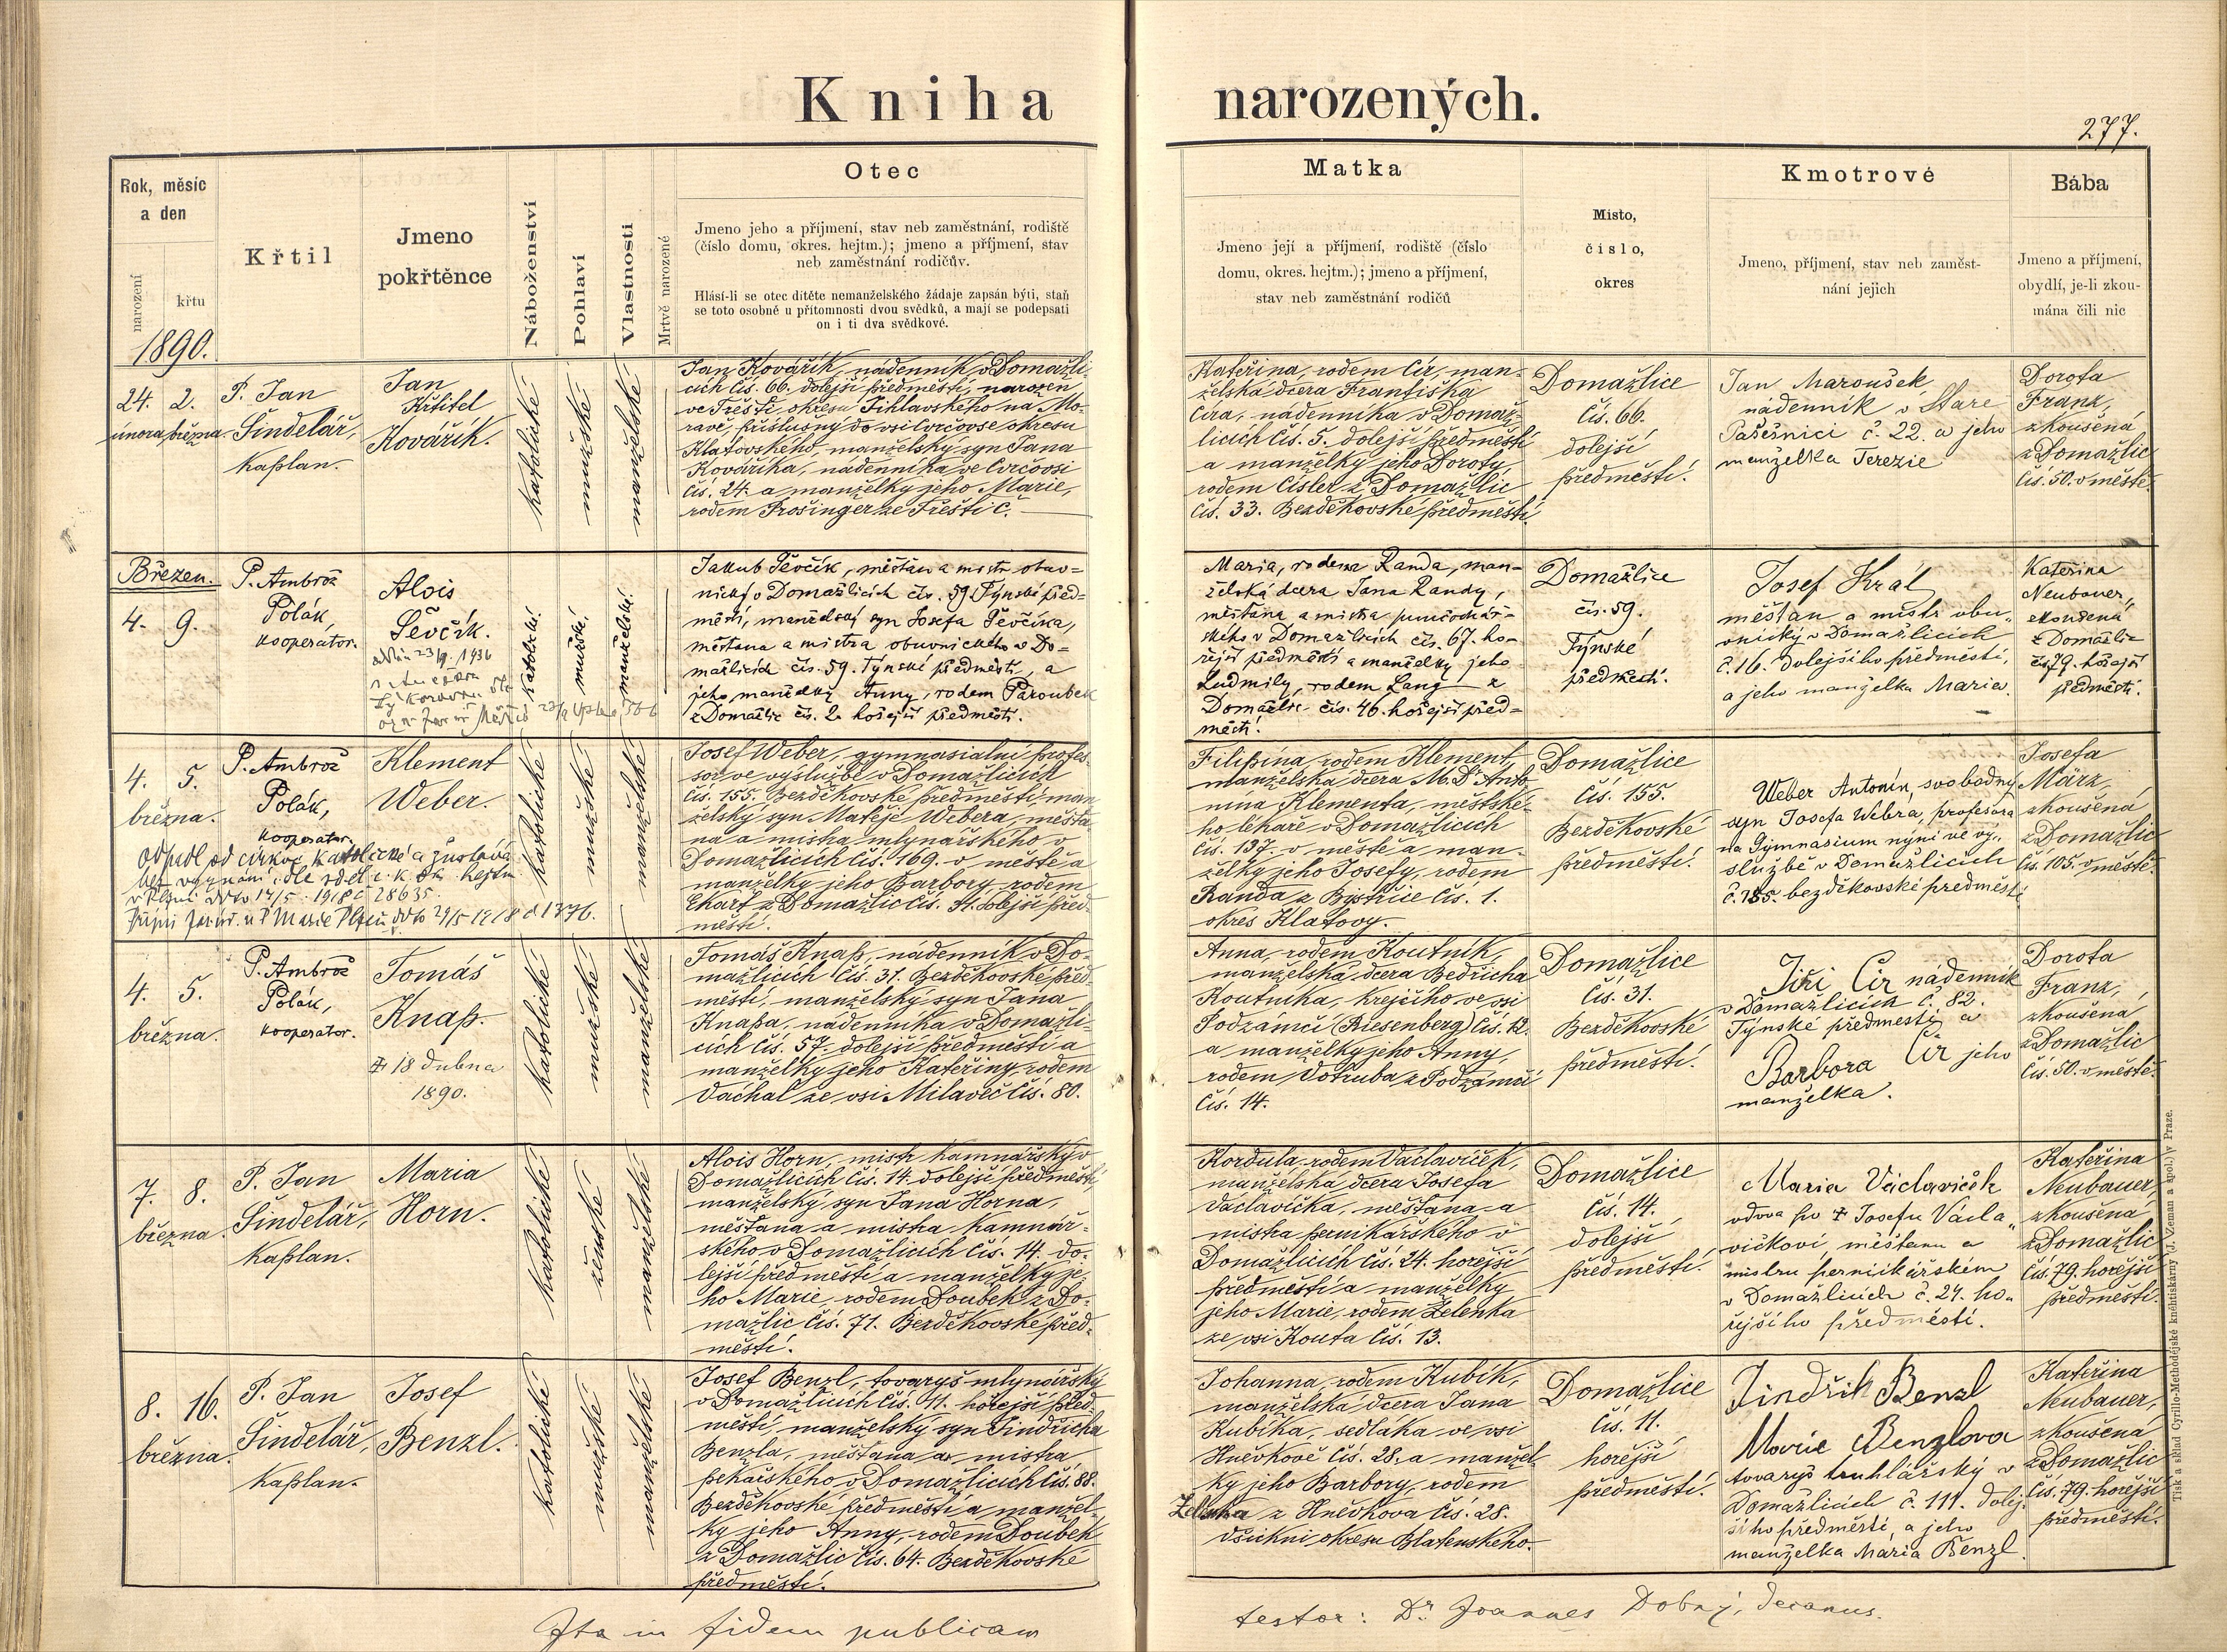 Kniha narozených.
277.
Rok, měsíc
a den
narození
křtu
1890.
Křtil
Jmeno
pokřtěnce
Náboženství
Pohlaví
Vlastnosti
Mrtvě narozené
Otec
Jmeno jeho a příjmení, stav neb zaměstnání, rodiště
(číslo domu, okres. hejtm.); jmeno a příjmení, stav
neb zaměstnání rodičův.
Hlásí-li se otec dítěte nemanželského žádaje zapsán býti, staň
se toto osobně u přítomnosti dvou svědků, a mají se podepsati
on i ti dva svědkové.
Matka
Jmeno její a příjmení, rodiště (číslo
domu, okres. hejtm.); jmeno a příjmení,
stav neb zaměstnání rodičů
Místo,
číslo,
okres
Kmotrové
Jmeno, příjmení, stav neb zaměst-
nání jejich
Bába
Jmeno a příjmení,
obydlí, je-li zkou-
mána čili nic
24. 2.
února března
P. Jan
Šindelář,
kaplan.
Jan
Křtitel
Kovářík.
katolické
mužské
manželské
Jan Kovářík, nádenník v Domažli-
cích čís. 66. dolejší předměstí, narozen
ve Třešti okresu Jihlavského na Mo-
ravě, příslušný do vsi Cvrčovse okresu
Klatovského, manželský syn Jana
Kováříka, nádenníka ve Cvrčovsi
čís. 24. a manželky jeho Marie,
rodem Prosinger ze Třešti č.
Kateřina, rodem Cír, man-
želská dcera Františka
Círa, nádenníka v Domaž-
licích čís. 5. dolejší předměstí
a manželky jeho Doroty,
rodem Císler z Domažlic
čís. 33. Bezděkovské předměstí
Domažlice
čís. 66.
dolejší
předměstí.
Jan Maroušek
nádenník v Staré
Pasečnici č. 22. a jeho
manželka Terezie
Dorota
Frank,
zkoušená
z Domažlic
čís. 50. v městě.
Březen.
4. 9.
P. Ambrož
Polák,
kooperator.
Alois
Ševčík.
23/9. 1936
katolické
mužské
manželské
Jakub Ševčík, měšťan a mistr obuv-
nický v Domažlicích čís. 59 Týnské před-
městí, manželský syn Josefa Ševčíka,
měšťana a mistra obuvnického v Do-
mažlicích čís. 59. Týnské předměstí, a
jeho manželky Anny, rodem Paroubek
z Domažlic čís. 2. hořejší předměstí.
Maria, rodem Randa, man-
želská dcera Jana Randy,
měšťana a mistra punčochář-
ského v Domažlicích čís. 67. ho-
řejší předměstí a manželky jeho
Ludmily, rodem Lang z
Domažlic čís. 46. hořejší před-
městí.
Domažlice
čís. 59.
Týnské
předměstí.
Josef Král
měšťan a mistr obu-
vnický v Domažlicích
č. 16. dolejšího předměstí,
a jeho manželka Maria.
Kateřina
Neubauer,
zkoušená
z Domažlic
čís. 79. hořejší
předměstí.
4. 5.
března.
P. Ambrož
Polák,
kooperator.
Klement
Weber.
odpadl od církve katolické a zůstává
bez vyznání, dle sděl. c. k. ok. hejtm.
v Plzni ddto 14/5. 1918 č 28635.
katolické
mužské
manželské
Josef Weber, gymnasialní profes-
sor ve výslužbě v Domažlicích
čís. 155. Bezděkovské předměstí, man-
želský syn Matěje Webera, měšťa-
na a mistra mlynářského v
Domažlicích čís. 169. v městě a
manželky jeho Barbory, rodem
Ekart z Domažlic čís. 31. dolejší před-
městí.
Filipína, rodem Klement,
manželská dcera M. Dr Anto-
nína Klementa, městské-
ho lékaře v Domažlicích
čís. 137. v městě a man-
želky jeho Josefy, rodem
Randa z Bystřice čís. 1.
okres Klatovy.
Domažlice
čís. 155.
Bezděkovské
předměstí.
Weber Antonín, svobodný
syn Josefa Webra, profesora
na Gymnasium nyní ve vý-
službě v Domažlicích
č. 155. bezděkovské předměstí
Josefa
März,
zkoušená
z Domažlic
čís. 105. v městě.
4. 5.
března.
P. Ambrož
Polák,
kooperator.
Tomáš
Knap.
18 dubna
1890.
katolické
mužské
manželské
Tomáš Knap, nádenník v Do-
mažlicích čís. 31. Bezděkovské před-
městí, manželský syn Jana
Knapa, nádenníka v Domažli-
cích čís. 57. dolejší předměstí a
manželky jeho Kateřiny, rodem
Váchal ze vsi Milaveč čís. 80.
Anna, rodem Koutník,
manželská dcera Bedřicha
Koutníka, krejčího ve vsi
Podzámčí (Riesenberg) čís. 12.
a manželky jeho Anny,
rodem Votruba z Podzámčí
čís. 14.
Domažlice
čís. 31.
Bezděkovské
předměstí.
Jiří Cír nádenník
v Domažlicích č. 82.
Týnské předměstí a
Barbora Cír jeho
manželka.
Dorota
Frank,
zkoušená
z Domažlic
čís. 50. v městě.
7. 8.
března.
P. Jan
Šindelář,
kaplan.
Maria
Horn.
katolické
ženské
manželské
Alois Horn, mistr kamnářský v
Domažlicích čís. 14. dolejší předměstí,
manželský syn Jana Horna,
měšťana a mistra kamnář-
ského v Domažlicích čís. 14. do-
lejší předměstí a manželky je-
ho Marie, rodem Doubek z Do-
mažlic čís. 71. Bezděkovské před-
městí.
Kordula, rodem Václavíček,
manželská dcera Josefa
Václavíčka, měšťana a
mistra perníkářského v
Domažlicích čís. 24. hořejší
předměstí a manželky
jeho Marie, rodem Zelenka
ze vsi Kouta čís. 13.
Domažlice
čís. 14.
dolejší
předměstí.
Maria Václavíček
vdova po † Josefu Václa-
víčkovi měšťanu a
mistru pernikářském
v Domažlicích č. 24. ho-
řejšího předměstí.
Kateřina
Neubauer,
zkoušená
z Domažlic
čís. 79. hořejší
předměstí.
8. 16.
března.
P. Jan
Šindelář,
kaplan.
Josef
Benzl.
katolické
mužské
manželské
Josef Benzl, tovaryš mlynářský
v Domažlicích čís. 11. hořejší před-
městí, manželský syn Jindřicha
Benzla, měšťana a mistra
pekařského v Domažlicích čís. 88.
Bezděkovské předměstí a manžel-
ky jeho Anny, rodem Doubek
z Domažlic čís. 64. Bezděkovské
předměstí.
Johanna, rodem Kubík,
manželská dcera Jana
Kubíka, sedláka ve vsi
Hněvkově čís. 28. a manžel-
ky jeho Barbory, rodem
z Hněvkova čís. 28.
všichni okresu Blatenského.
Domažlice
čís. 11.
hořejší
předměstí.
Jindřich Benzl
Marie Benzlova
tovaryš truhlářský v
Domažlicích č. 111. dolej-
šího předměstí, a jeho
manželka Maria Benzl.
Kateřina
Neubauer,
zkoušená
z Domažlic
čís. 79. hořejší
předměstí.
Ita in fidem publicam
testor: Dr Joannes Dobrý, decanus.
Tisk a sklad Cyrillo-Methodějské knihtiskárny (J. Zeman a spol.) V Praze.